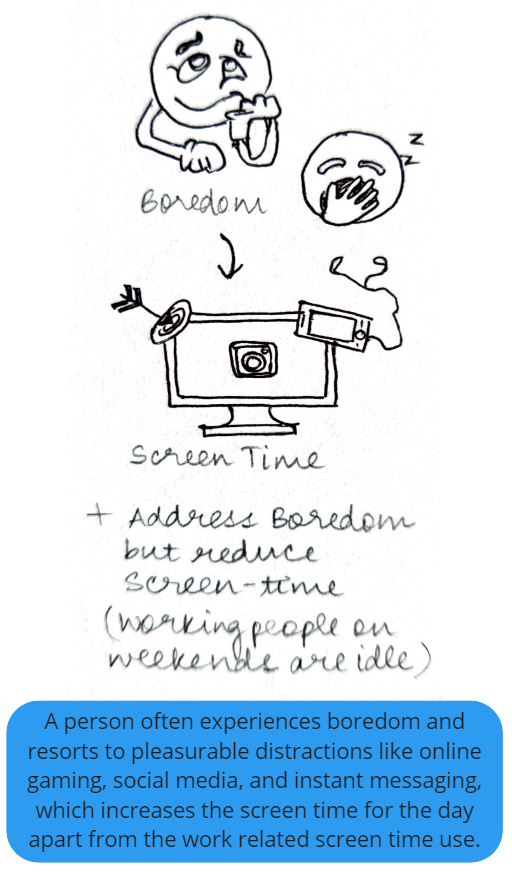 z
z
Boredom
Screen Time
+ Address Boredom
but reduce
screen-time
(working people on
weekends are idle)
A person often experiences boredom and
resorts to pleasurable distractions like online
gaming, social media, and instant messaging,
which increases the screen time for the day
apart from the work related screen time use.